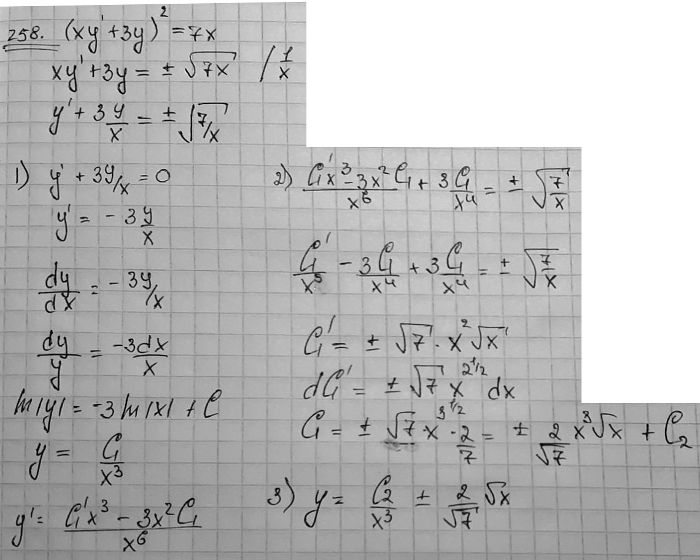 258. (xy' + 3y)² = 7x
xy' + 3y = ± √7x / 1/x
y' + 3 y/x = ± √7/x
1) y' + 3y/x = 0
y' = - 3 y/x
dy/dx = - 3y/x
dy/y = -3dx/x
ln|y| = -3 ln|x| + C
y = C₁/x³
y' = (C₁'x³ - 3x²C₁)/x⁶
2) (C₁'x³ - 3x²C₁)/x⁶ + 3 C₁/x⁴ = ± √7/x
C₁'/x³ - 3C₁/x⁴ + 3 C₁/x⁴ = ± √7/x
C₁' = ± √7 · x² √x
dC₁' = ± √7 x^(2 1/2) dx
C₁ = ± √7 x^(3 1/2) · 2/7 = ± 2/√7 x³√x + C₂
3) y = C₂/x³ ± 2/√7 √x